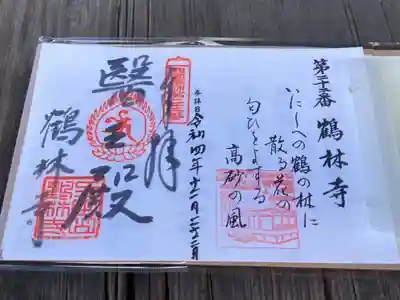 鶴林寺
いにしへの鶴の林に
散る花の
匂ひをよする
高砂の風
令和四年十二月
奉拝
醫王殿
鶴林寺